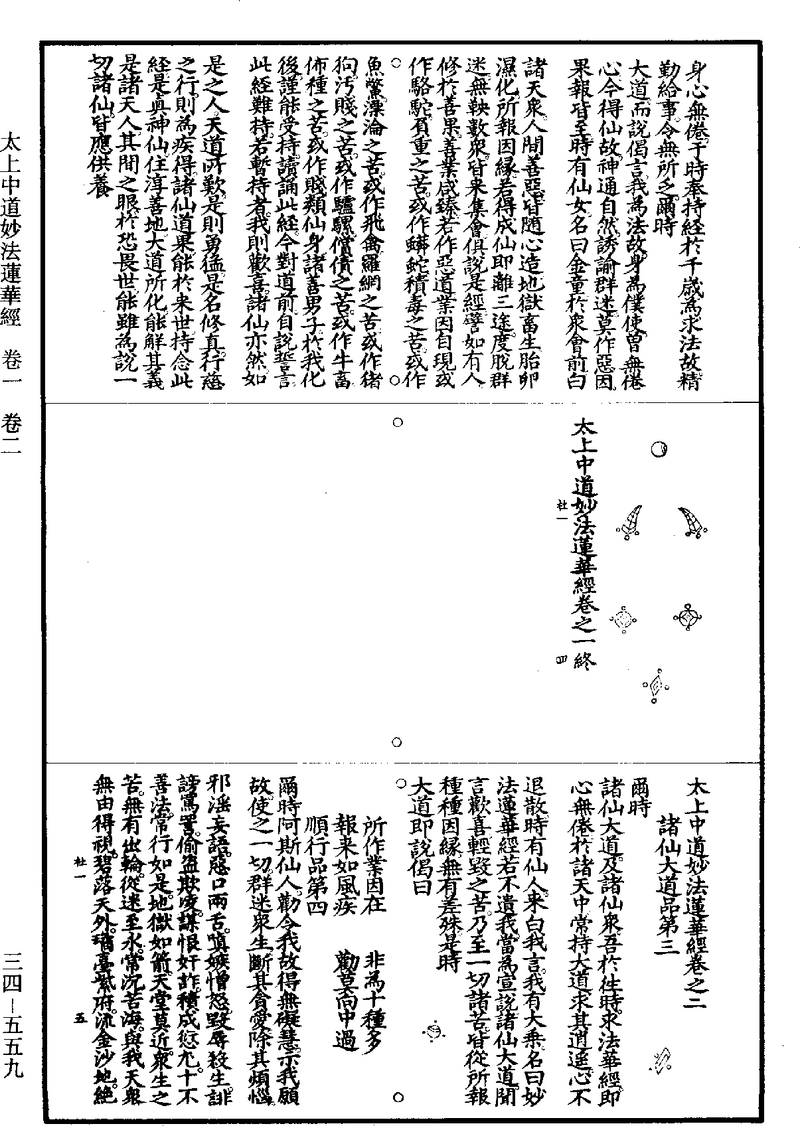 身心無倦于時奉持經於千歲為求法故精
勤給事令無所乏爾時
大道而說偈言我為法故身為僕使曾無倦
心今得仙故神通自然誘諭群迷莫作惡因
果報皆至時有仙女名曰金童於眾會前白
諸天眾人間善惡皆隨心造地獄畜生胎卵
濕化所報因緣若得成仙即離三途度脫群
迷無鞅數眾皆來集會俱說是經譬如有人
修於善果善業咸臻若作惡道業因自現或
作駱駝負重之苦或作蟒蛇積毒之苦或作
魚鱉澡淪之苦或作飛禽羅網之苦或作猪
狗污賤之苦或作驢騾償債之苦或作牛畜
佈種之苦或作賤類仙身諸善男子於我化
後謹能受持讀誦此經今對道前自說誓言
此經難持若暫持者我則歡喜諸仙亦然如
是之人天道所歎是則勇猛是名修真行慈
之行則為疾得諸仙道果能於來世持念此
經是真神仙住淳善地大道所化能解其義
是諸天人其間之眼於恐畏世能雖為說一
切諸仙皆應供養
太上中道妙法蓮華經卷之一終
杜一
四
太上中道妙法蓮華經卷之二
諸仙大道品第三
爾時
諸仙大道及諸仙眾吾於往時求法華經即
心無倦於諸天中常持大道求其逍遥心不
退散時有仙人來白我言我有大乘名曰妙
法蓮華經若不遺我當為宣說諸仙大道聞
言歡喜輕毀之苦乃至一切諸苦皆從所報
種種因緣無有差殊是時
大道即說偈曰
所作業因在 非為十種多
報來如風疾 勸莫向中過
順行品第四
爾時阿斯仙人勸令我故得無礙慧示我願
故使之一切群迷眾生斷其貪愛除其煩惱
邪淫妄語惡口兩舌嗔嫉憎怒毀辱殺生誹
謗罵詈偷盜欺凌謀恨奸詐積成愆尤十不
善法常行如是地獄如箭天堂莫近眾生之
苦無有出輪從迷至永常沉苦海與我天眾
無由得視碧落天外瑤臺紫府流金沙地絕
杜一
五
太上中道妙法蓮華經 卷一 卷二
三四－五五九